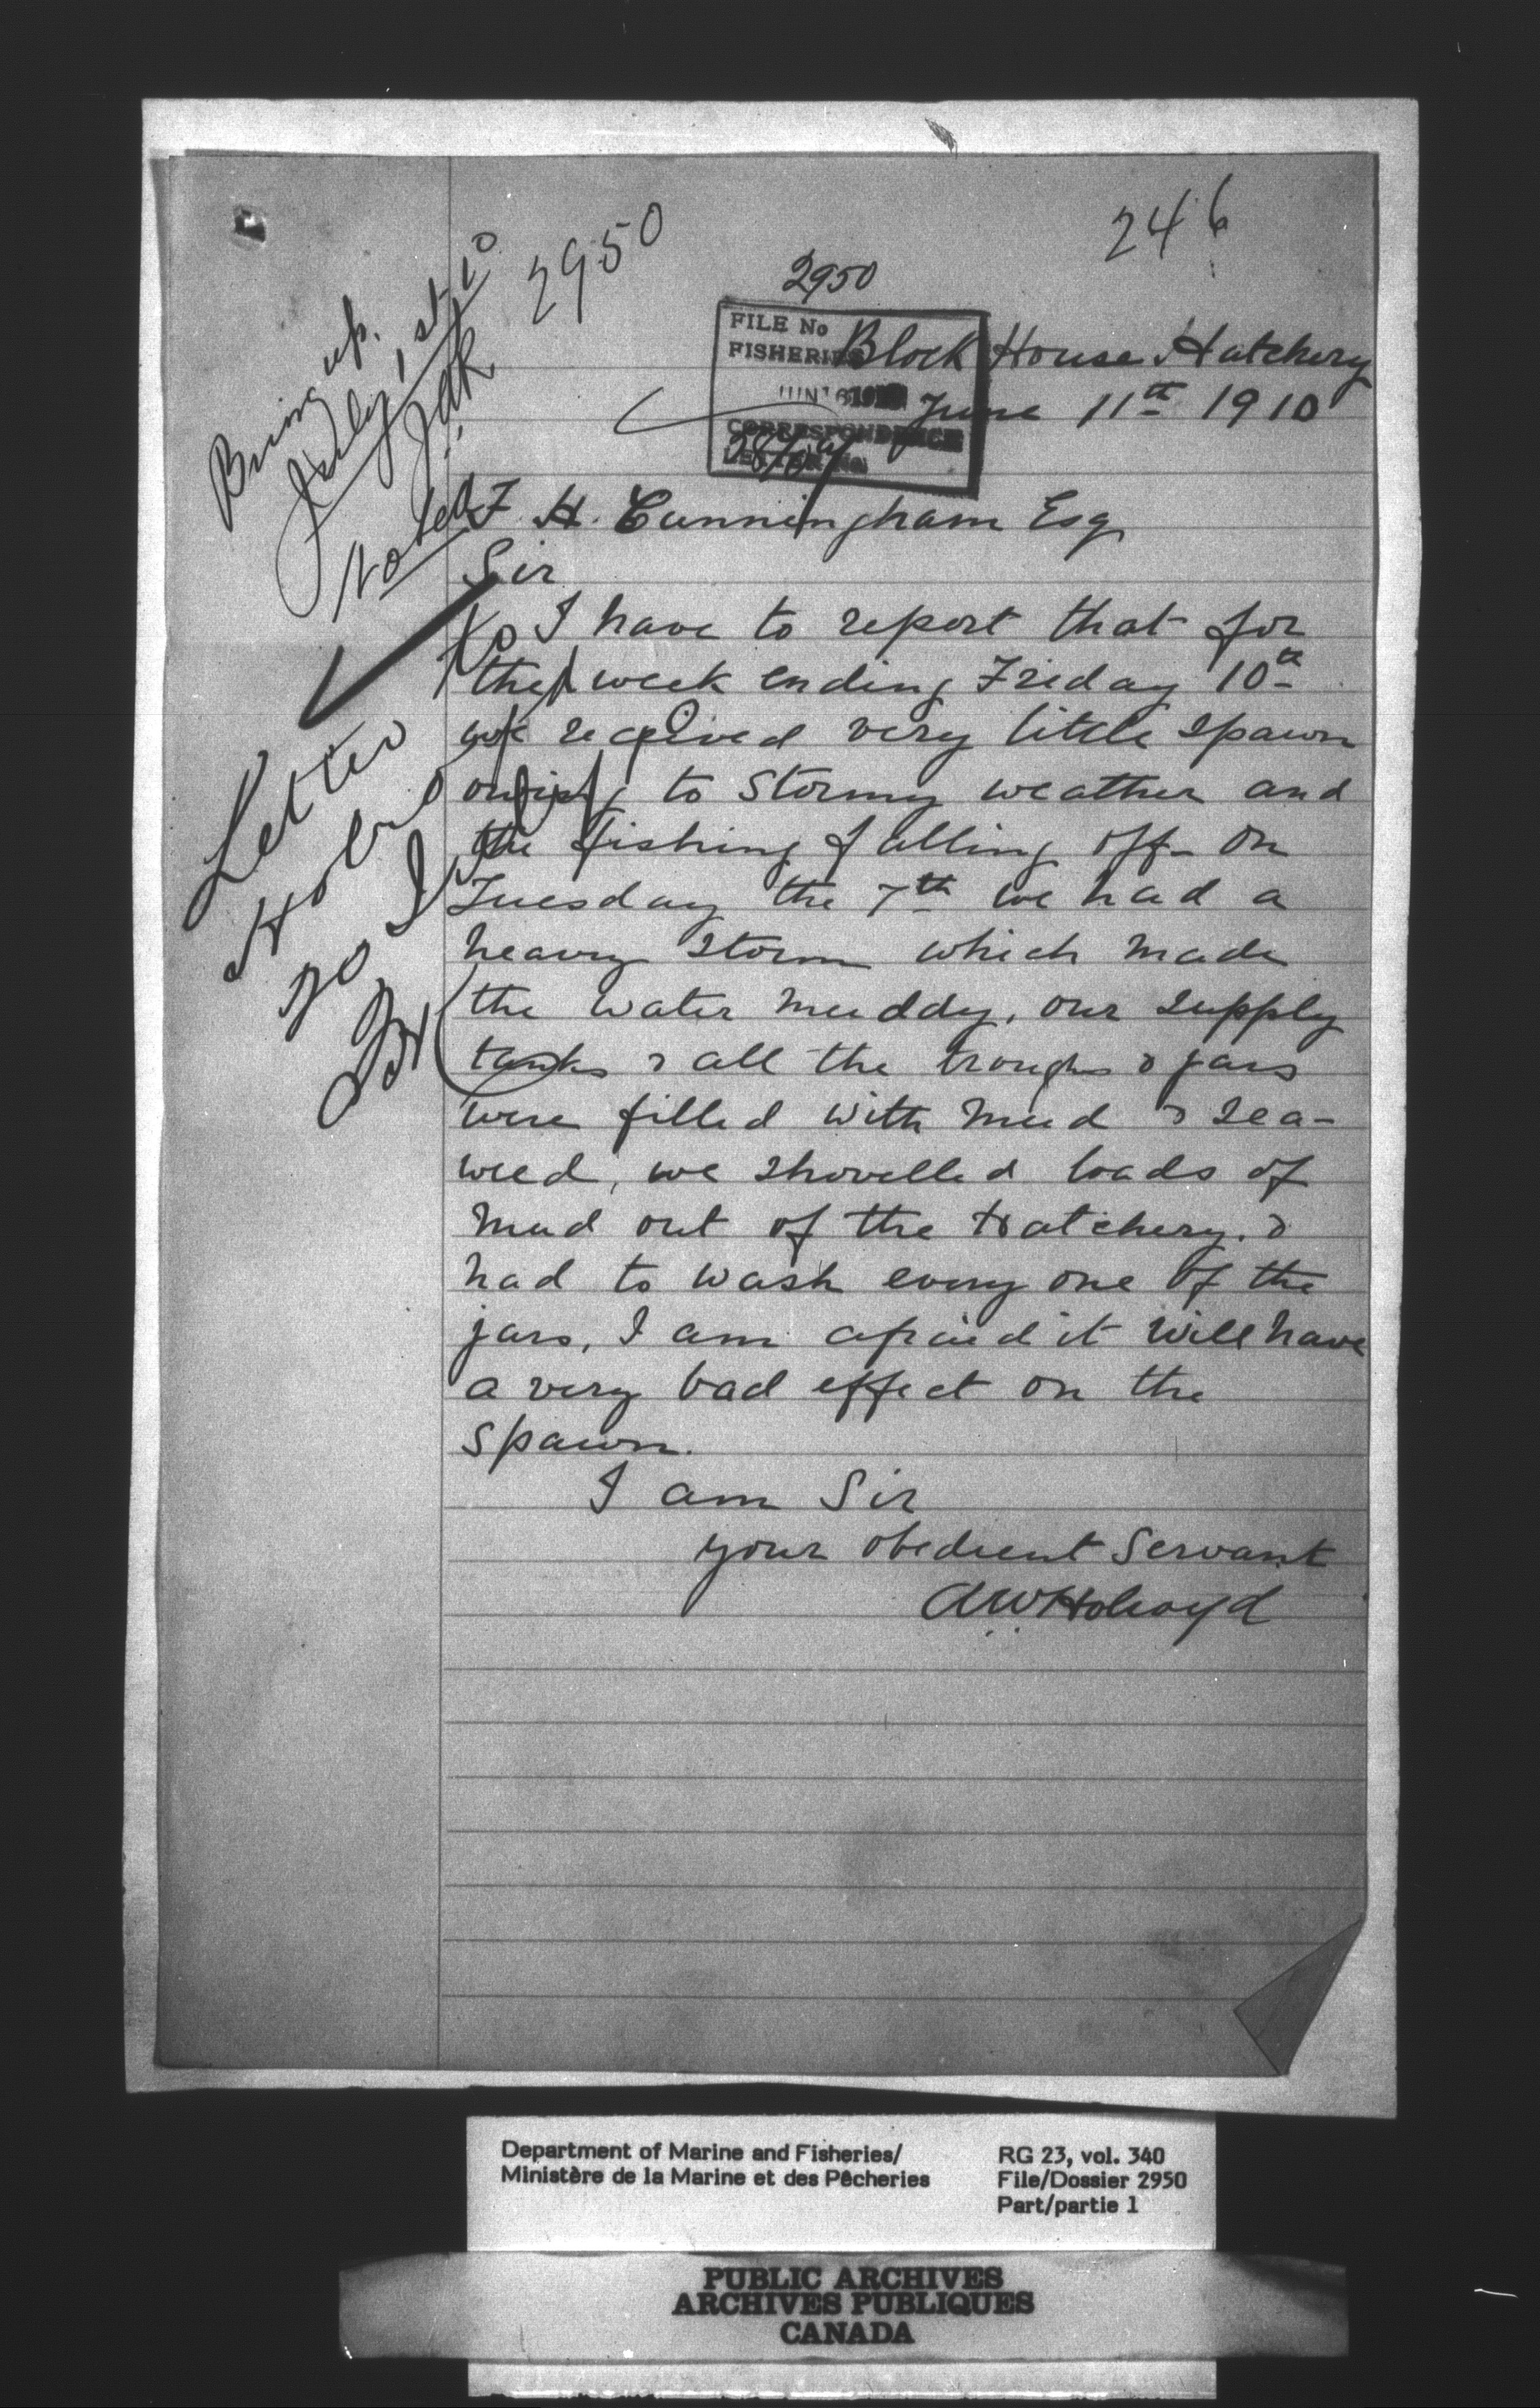 246
2950
2950
FILE No
FISHERIES
JUN 16 1910
CORRESPONDENCE
LETTER No.
Block House Hatchery
June 11th 1910
Bring up.
July 1st-10
Noted
F. H. Cunningham Esq
Sir
I have to report that for
the week ending Friday 10th
we received very little spawn
owing to stormy weather and
the fishing falling off - On
Tuesday the 7th we had a
heavy storm which made
the water muddy, our supply
tanks & all the troughs & jars
were filled with mud & sea-
weed, we shovelled loads of
mud out of the Hatchery. &
had to wash every one of the
jars, I am afraid it will have
a very bad effect on the
spawn.
I am Sir
your obedient Servant
AW Holroyd
Letter to
Department of Marine and Fisheries/
Ministère de la Marine et des Pêcheries
RG 23, vol. 340
File/Dossier 2950
Part/partie 1
PUBLIC ARCHIVES
ARCHIVES PUBLIQUES
CANADA